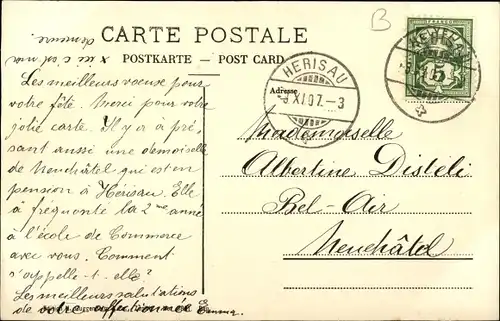 CARTE POSTALE
POSTKARTE — POST CARD
B
HERISAU
XI.07.-3
Adresse
FRANCO
5
Les meilleurs voeux pour
votre fête. Merci pour votre
jolie carte. Il y a à pré-
sent aussi une demoiselle
de Neuchâtel qui est en
pension à Hérisau. Elle
a fréquenté la 2me année
à l'école de Commerce
avec vous. Comment
s'appelle-t-elle?
Les meilleurs salutations
de votre affectionnée Emma.
Mademoiselle
Albertine Distéli
Bel-Air
Neuchâtel